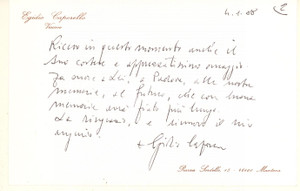 Egidio Caporello
Vescovo
Ricevo in questo momento anche il
Suo cortese e apprezzatissimo omaggio
fa onore a Lei, a Padova, alle nostre
memorie, al futuro, che con buone
memorie avrà fiato più lungo.
La ringrazio, e rinnovo il mio
augurio.
+ Egidio Caporello
Piazza Sordello 15 - 46100 Mantova